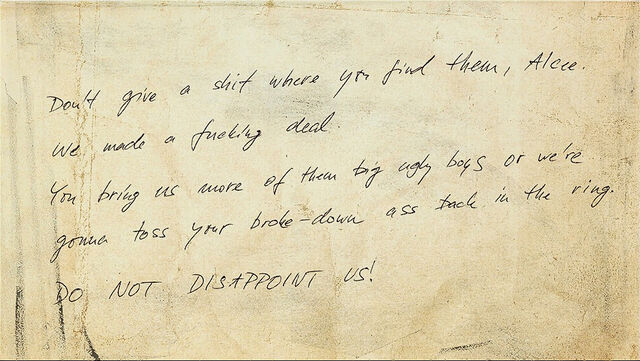 Don't give a shit where you find them, Alcee.
We made a fucking deal.
You bring us more of them big ugly boys or we're
gonna toss your broke-down ass back in the ring.
DO NOT DISAPPOINT US!